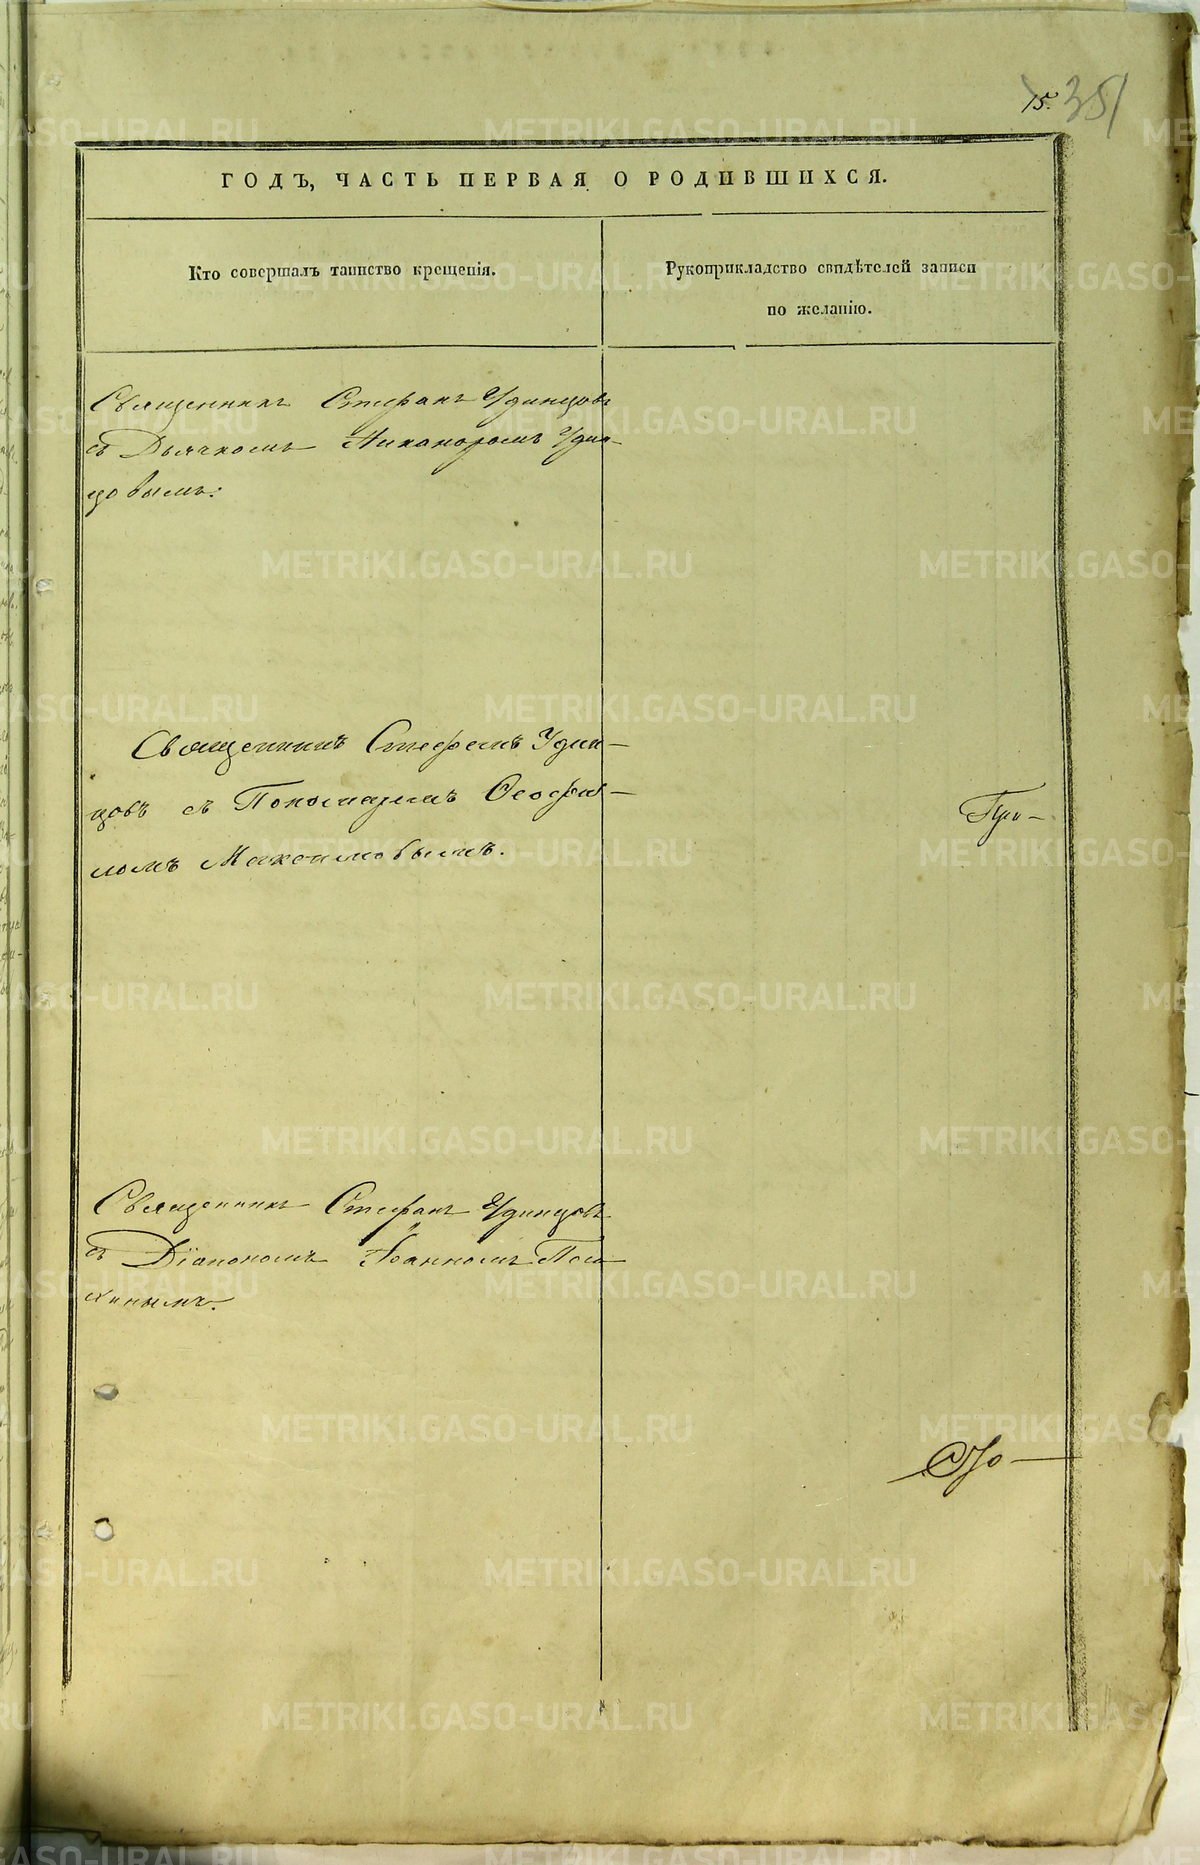 15. 351
ГОДЪ, ЧАСТЬ ПЕРВАЯ О РОДИВШИХСЯ.
Кто совершалъ таинство крещенія.
Рукоприкладство свидѣтелей записи
по желанію.
Священникъ Стефанъ Удинцовъ
съ Дьячкомъ Никаноромъ Удин-
цовымъ:
Священникъ Стефанъ Удин-
цовъ съ Пономаремъ Ѳеофи-
ломъ Максимовымъ.
Священникъ Стефанъ Удинцовъ
съ Діакономъ Іоанномъ
METRIKI.GASO-URAL.RU